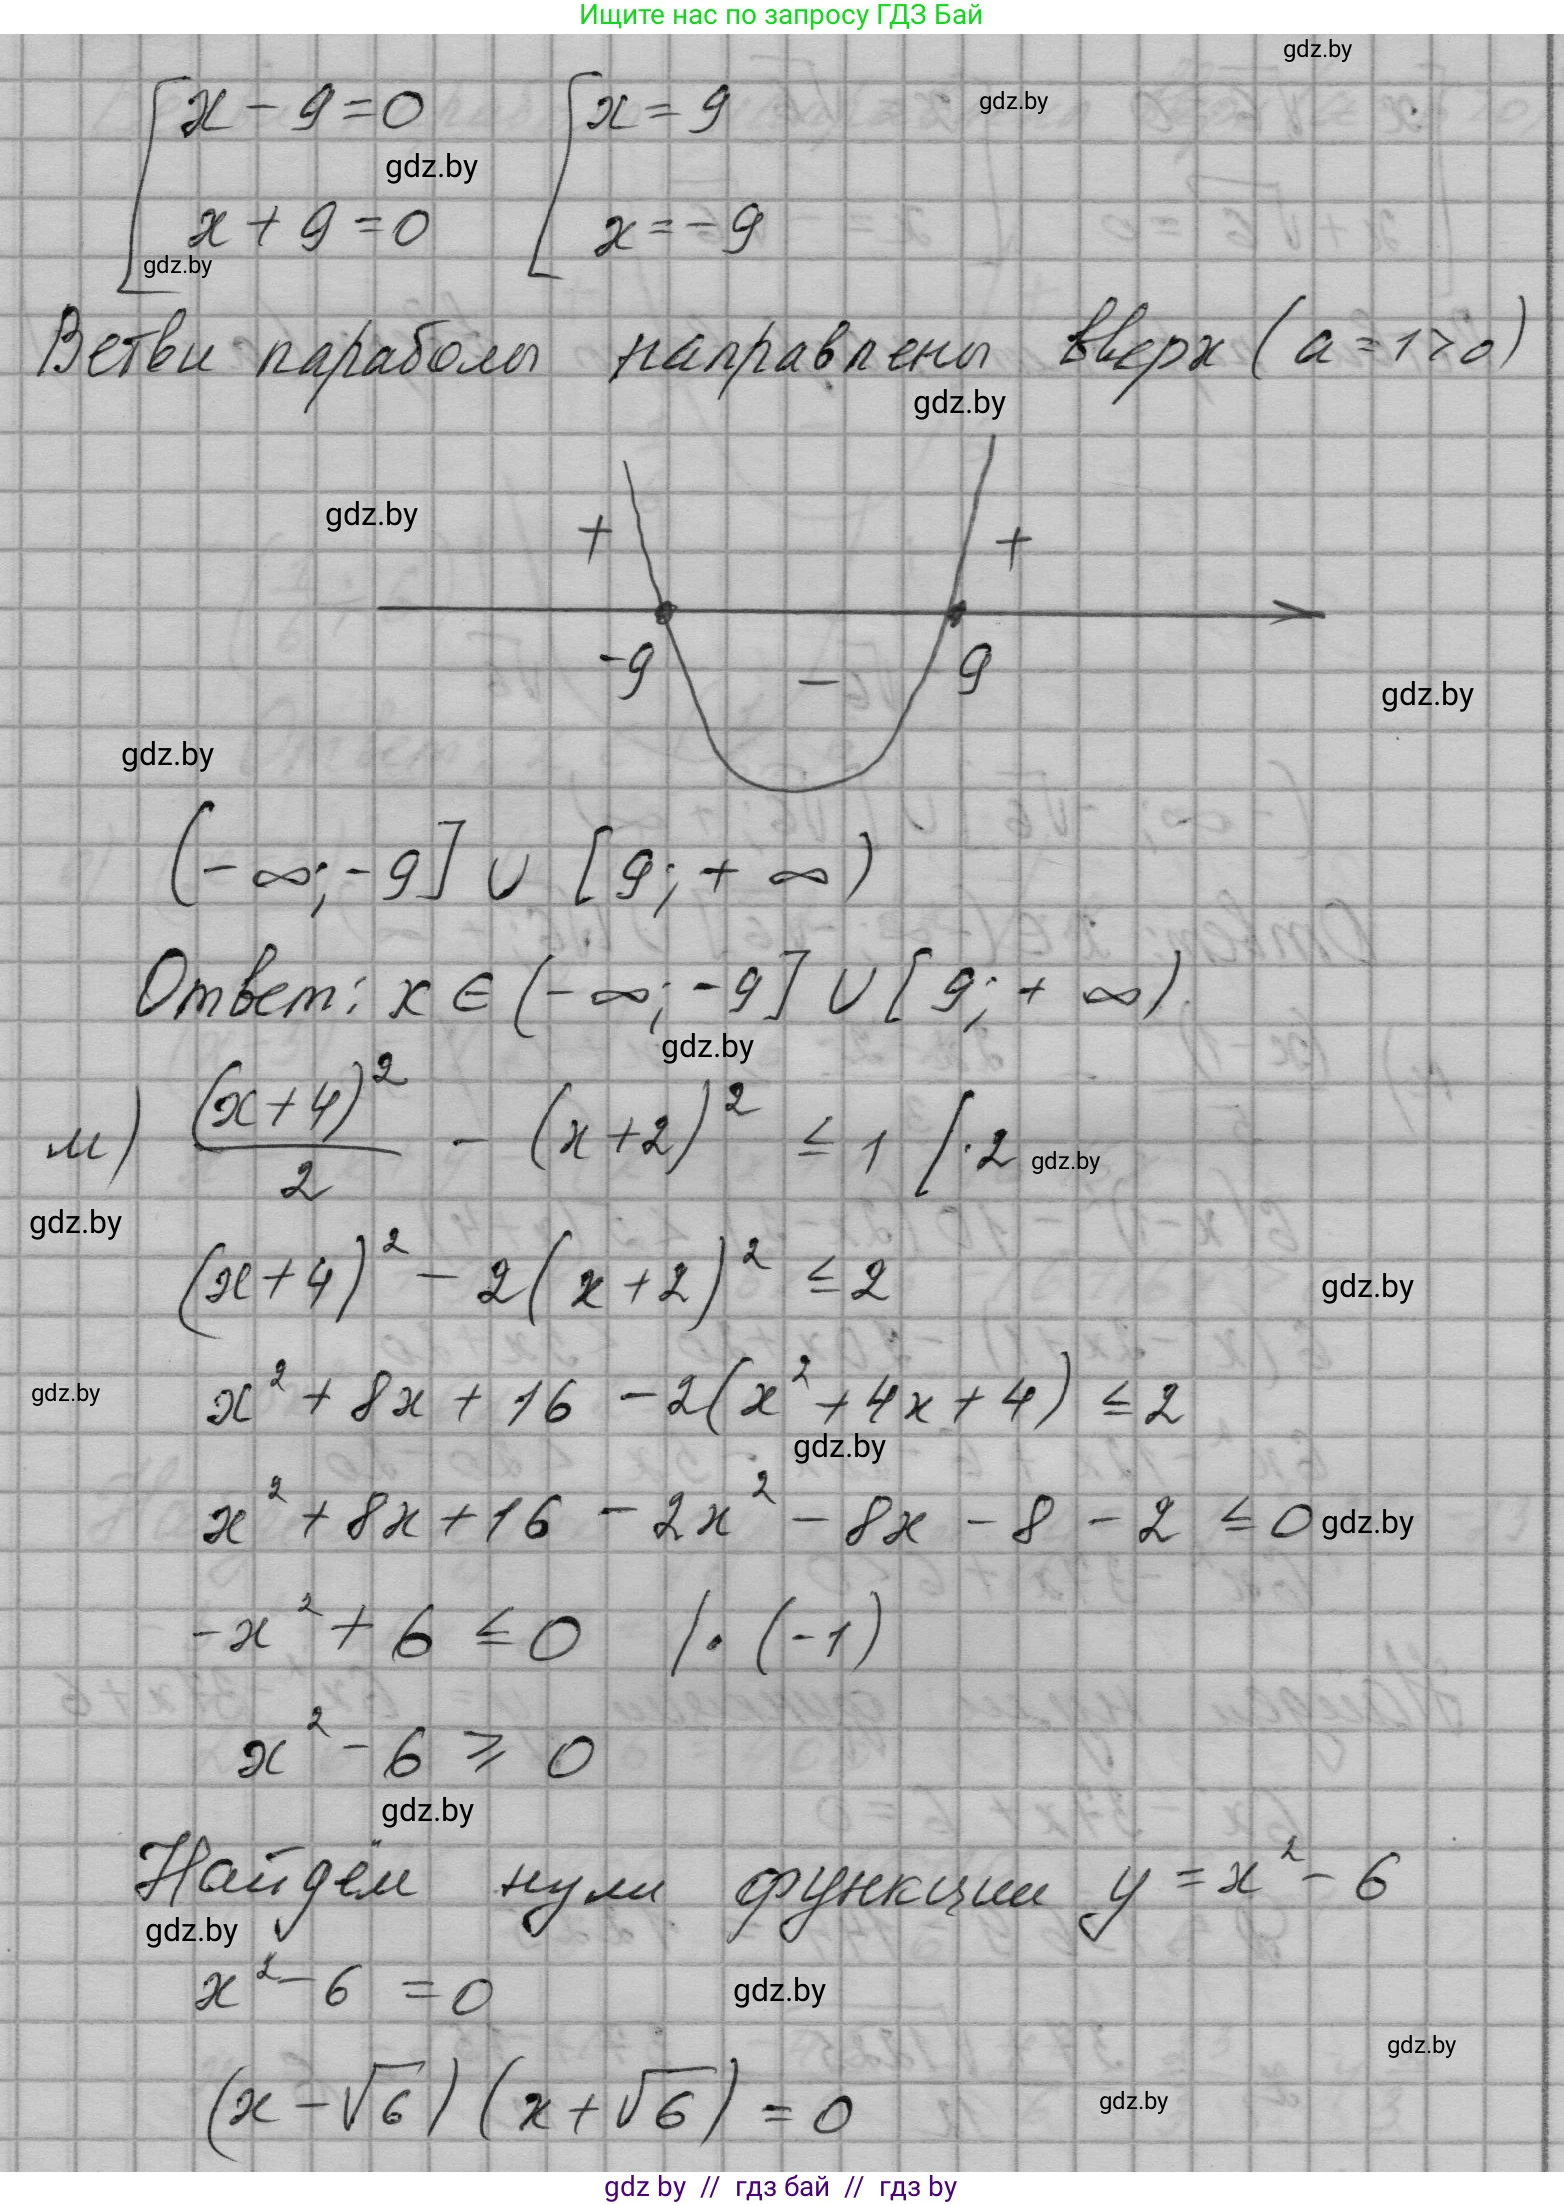 Ищите нас по запросу ГДЗ Бай
gdz.by
x - 9 = 0 x = 9
gdz.by
gdz.by
x + 9 = 0 x = -9
gdz.by
Ветви параболы направлены вверх (a = 1 > 0)
gdz.by
gdz.by
+ +
-9 - 9
gdz.by
gdz.by
(-∞; -9] ∪ [9; +∞)
Ответ: x ∈ (-∞; -9] ∪ [9; +∞).
gdz.by
м) (x+4)²/2 - (x+2)² ≤ 1 |·2
gdz.by
gdz.by
(x+4)² - 2(x+2)² ≤ 2
gdz.by
x² + 8x + 16 - 2(x² + 4x + 4) ≤ 2
gdz.by
gdz.by
x² + 8x + 16 - 2x² - 8x - 8 - 2 ≤ 0
gdz.by
-x² + 6 ≤ 0 |·(-1)
x² - 6 ⩾ 0
gdz.by
Найдём нули функции y = x² - 6
gdz.by
x² - 6 = 0
gdz.by
gdz.by
(x - √6)(x + √6) = 0
gdz.by
gdz by // гдз бай // гдз by